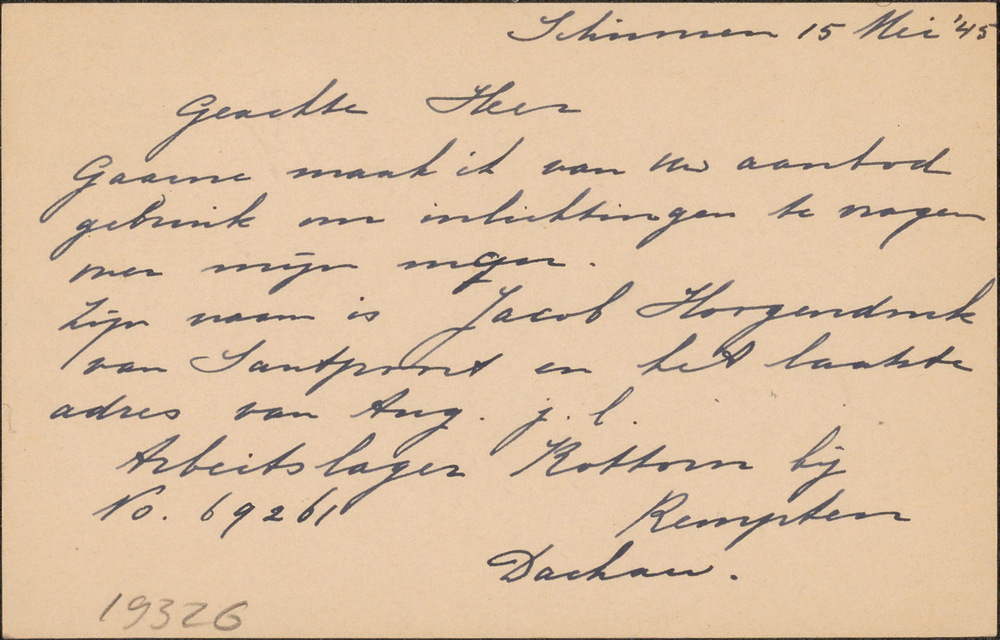 Schinnen 15 Mei '45
Geachte Heer
Gaarne maak ik van Uw aanbod
gebruik om inlichtingen te vragen
over mijn neger.
Zijn naam is Jacob Hoogendonk
van Santpoort en het laatste
adres van Aug. j.l.
Arbeitslager Kottorn bij
No. 69261 Kempten
Dachau.
19326